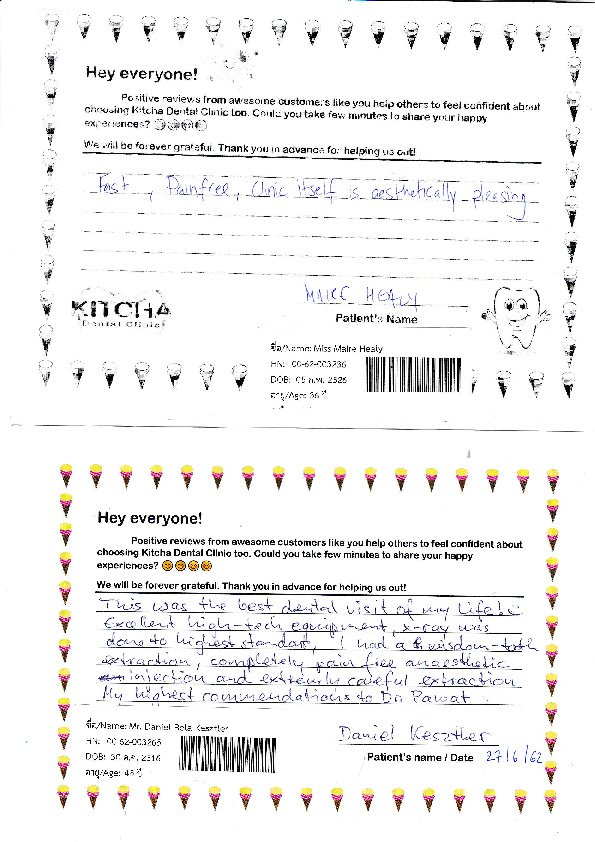 Hey everyone!
Positive reviews from awesome customers like you help others to feel confident about
choosing Kitcha Dental Clinic too. Could you take few minutes to share your happy
experiences?
We will be forever grateful. Thank you in advance for helping us out!
Fast, Painfree, Clinic itself is aesthetically pleasing
MAIRE HEALY
Patient's Name
KITCHA
Dental Clinic
ชื่อ/Name: Miss Maire Healy
HN: 00-62-003236
DOB: 05 ก.พ. 2526
อายุ/Age: 36 ปี
Hey everyone!
Positive reviews from awesome customers like you help others to feel confident about
choosing Kitcha Dental Clinic too. Could you take few minutes to share your happy
experiences?
We will be forever grateful. Thank you in advance for helping us out!
This was the best dental visit of my life!
Excellent high-tech equipment, x-ray was
done to highest standart, I had a wisdom-tooth
extraction, completely pain free anaesthetic
injection and extremly careful extraction
My highest commendations to Dr. Pawat
ชื่อ/Name: Mr. Daniel Bela
HN: 00-62-003265
DOB: 2516
อายุ/Age: 45 ปี
Daniel Keszther
Patient's name / Date 27/6/62